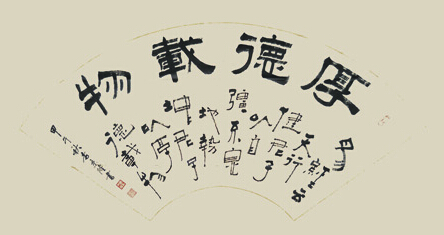 厚德載物
天行
健君子
以自
彊不息
地勢
坤君子
以厚
德載物
甲午秋
書